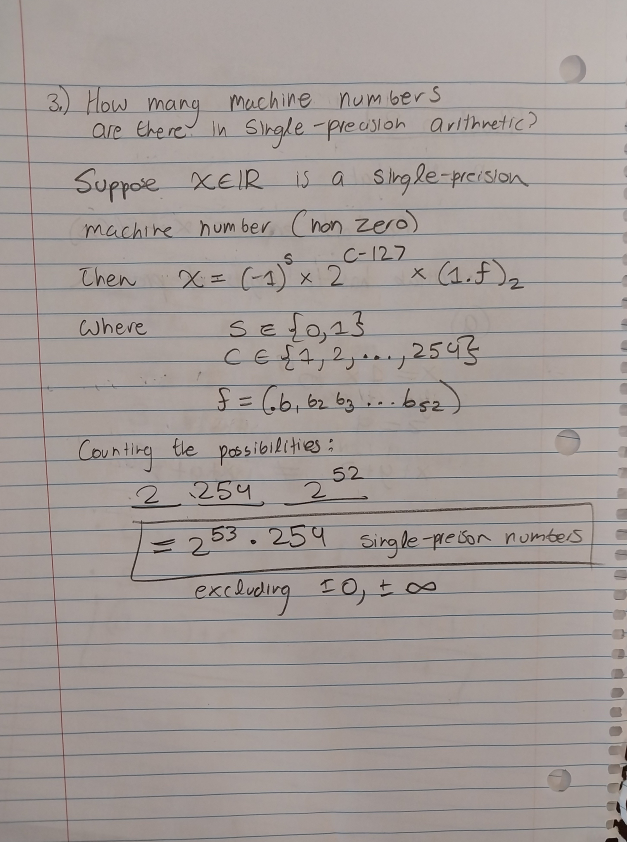 3.) How many machine numbers
are there in single-precision arithmetic?
Suppose x∈ℝ is a single-preision
machine number (non zero)
Then x = (-1)^s × 2^(C-127) × (1.f)₂
where s ∈ {0,1}
C ∈ {1, 2, ..., 254}
f = (.b₁ b₂ b₃ ... b₅₂)
Counting the possibilities:
2 . 254 2^52
= 2^53 · 254 single-preison numbers
excluding ±0, ± ∞